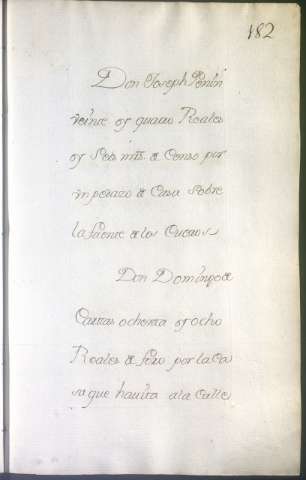 182
Don Joseph
veinte y quatro Reales
y seis mrs. de Censo por
vn pedazo de Casa sobre
la fuente de los
Don Domingo de
ochenta y ocho
Reales de por la Ca
sa que havita a la Calle